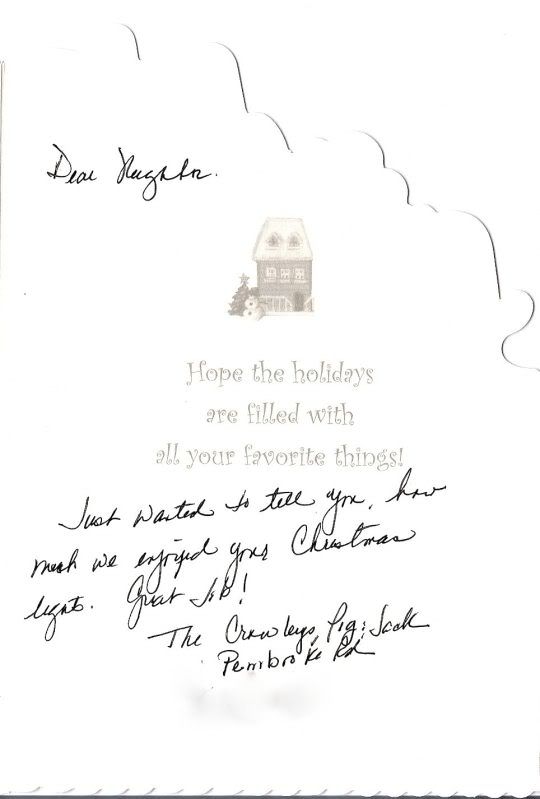 Dear Neighbor.
Hope the holidays
are filled with
all your favorite things!
Just wanted to tell you, how
much we enjoyed your Christmas
lights. Great Job!
The Crowleys, Jack
Pembroke Rd